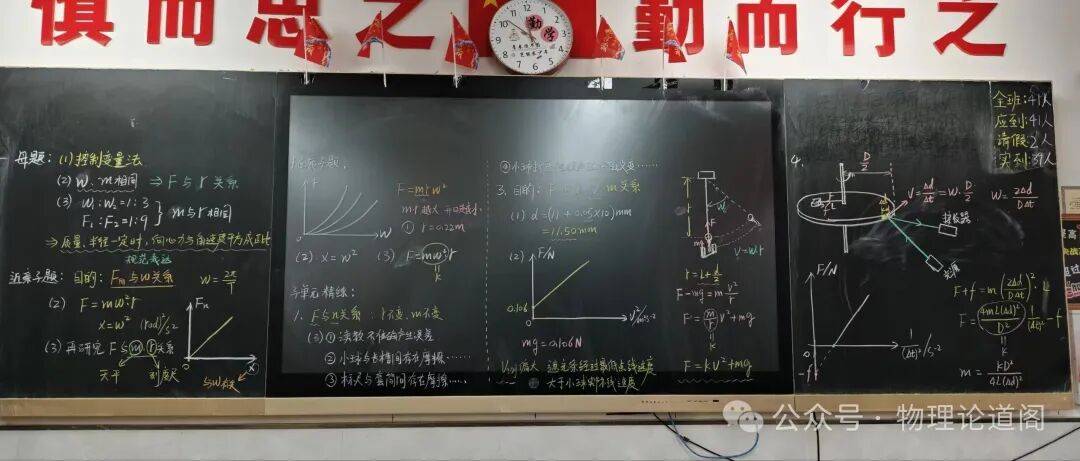 慎而思之 勤而行之
勤学
母题：(1) 控制变量法
(2) W、m相同 ⇒ F与r关系
(3) W₁:W₂=1:3
F₁:F₂=1:9
} m与r相同
⇒ 质量、半径一定时，向心力与角速度平方成正比
规范表达
近亲子题：目的：Fn与W关系 W=2π/T
(2) F=mω²r
x=ω² (rad)²/s²
(3) 再研究 F与m、r关系
天平 刻度尺
Fn
x
与W有关
F
W
F=mrω²
mr越大
① r=0.22m
(2)·x=W² (3) F=mω²r
k
与单元精练：
1. F与n关系：r不变、m不变
(3) ① 读数不准确产生误差
② 小球与
间存在摩擦……
③ 标尺与套筒间存在摩擦……
④ 小球
3. 目的：F
m关系
(1) d=(11+0.05×10)mm
=11.50mm
(2)
F/N
0.106
v²/m²·s⁻²
mg=0.106N
V测偏大 遮光条经过最低点线速度
大于小球
线速度
F
mg
V=Wr
r=L+d/2
F-mg=m v²/r
F=m/r v²+mg
k
F=kv²+mg
4.
D/2
V=Δd/Δt=W·D/2
W=2Δd/DΔt
接收器
光源
F/N
-f
1/(Δt)²/s⁻²
F+f=m(2Δd/DΔt)²·L
F=4mL(Δd)²/D² · 1/(Δt)² -f
k
m=kD²/4L(Δd)²
全班：41人
应到：41人
请假：2人
实到：39人
公众号·物理论道阁